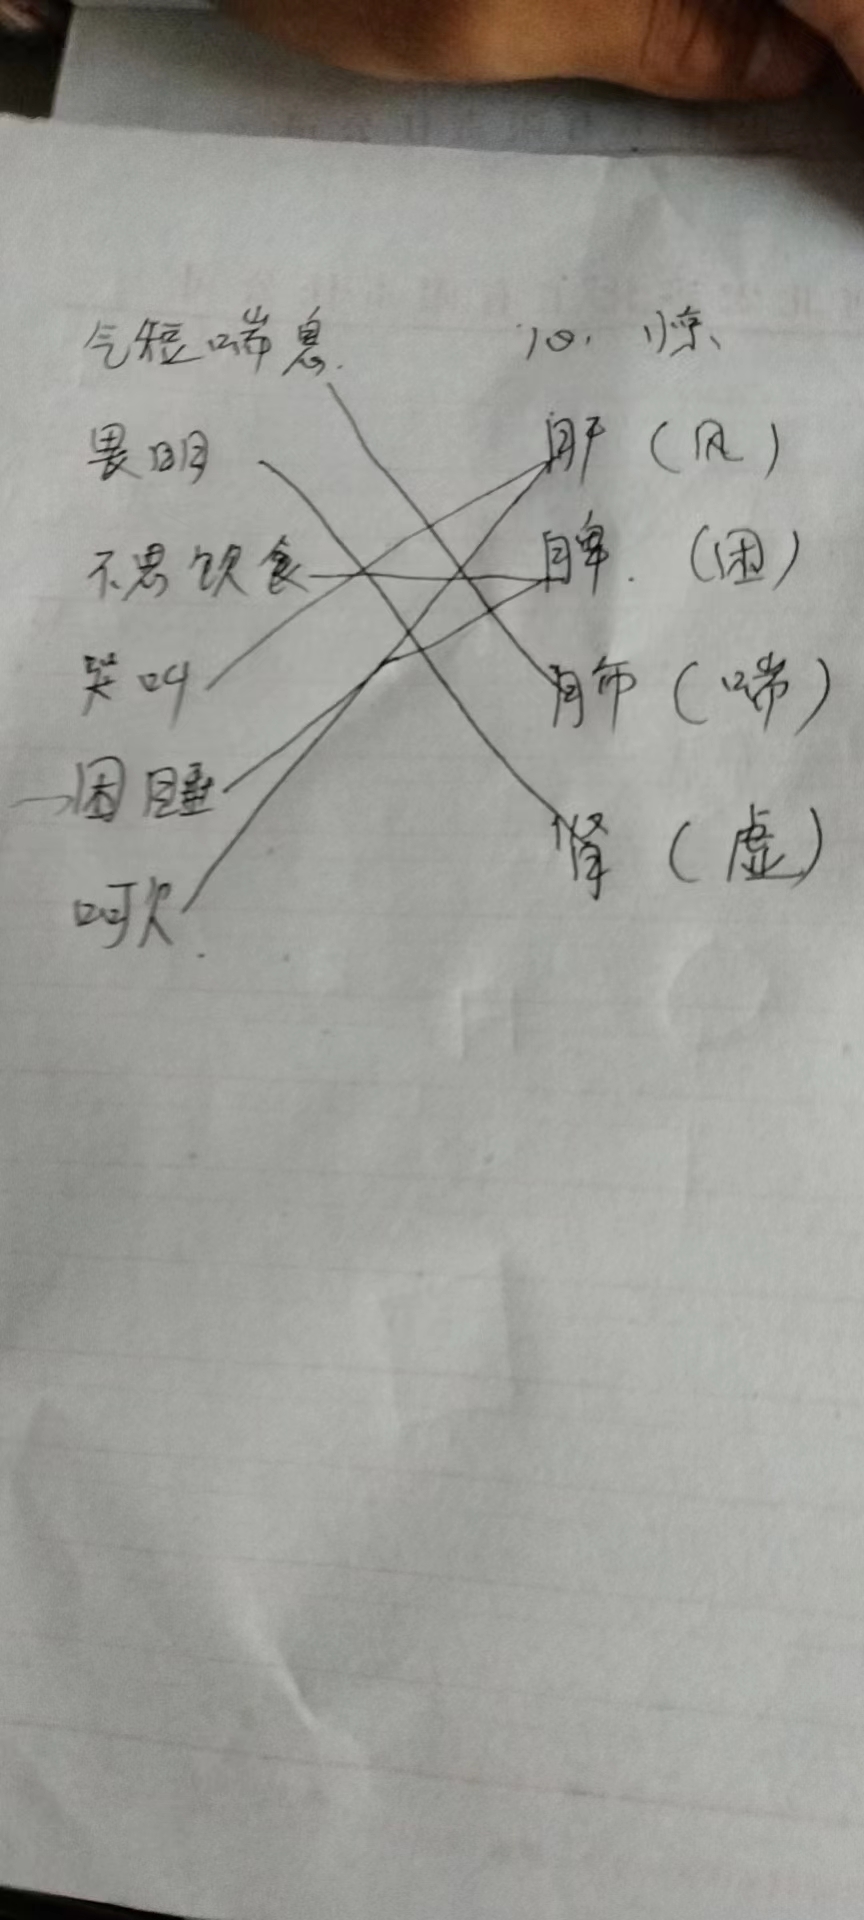 气短喘息. 心. 惊
畏明 肝（风）
不思饮食 脾.（困）
哭叫 肺（喘）
困睡 肾（虚）
呵欠.